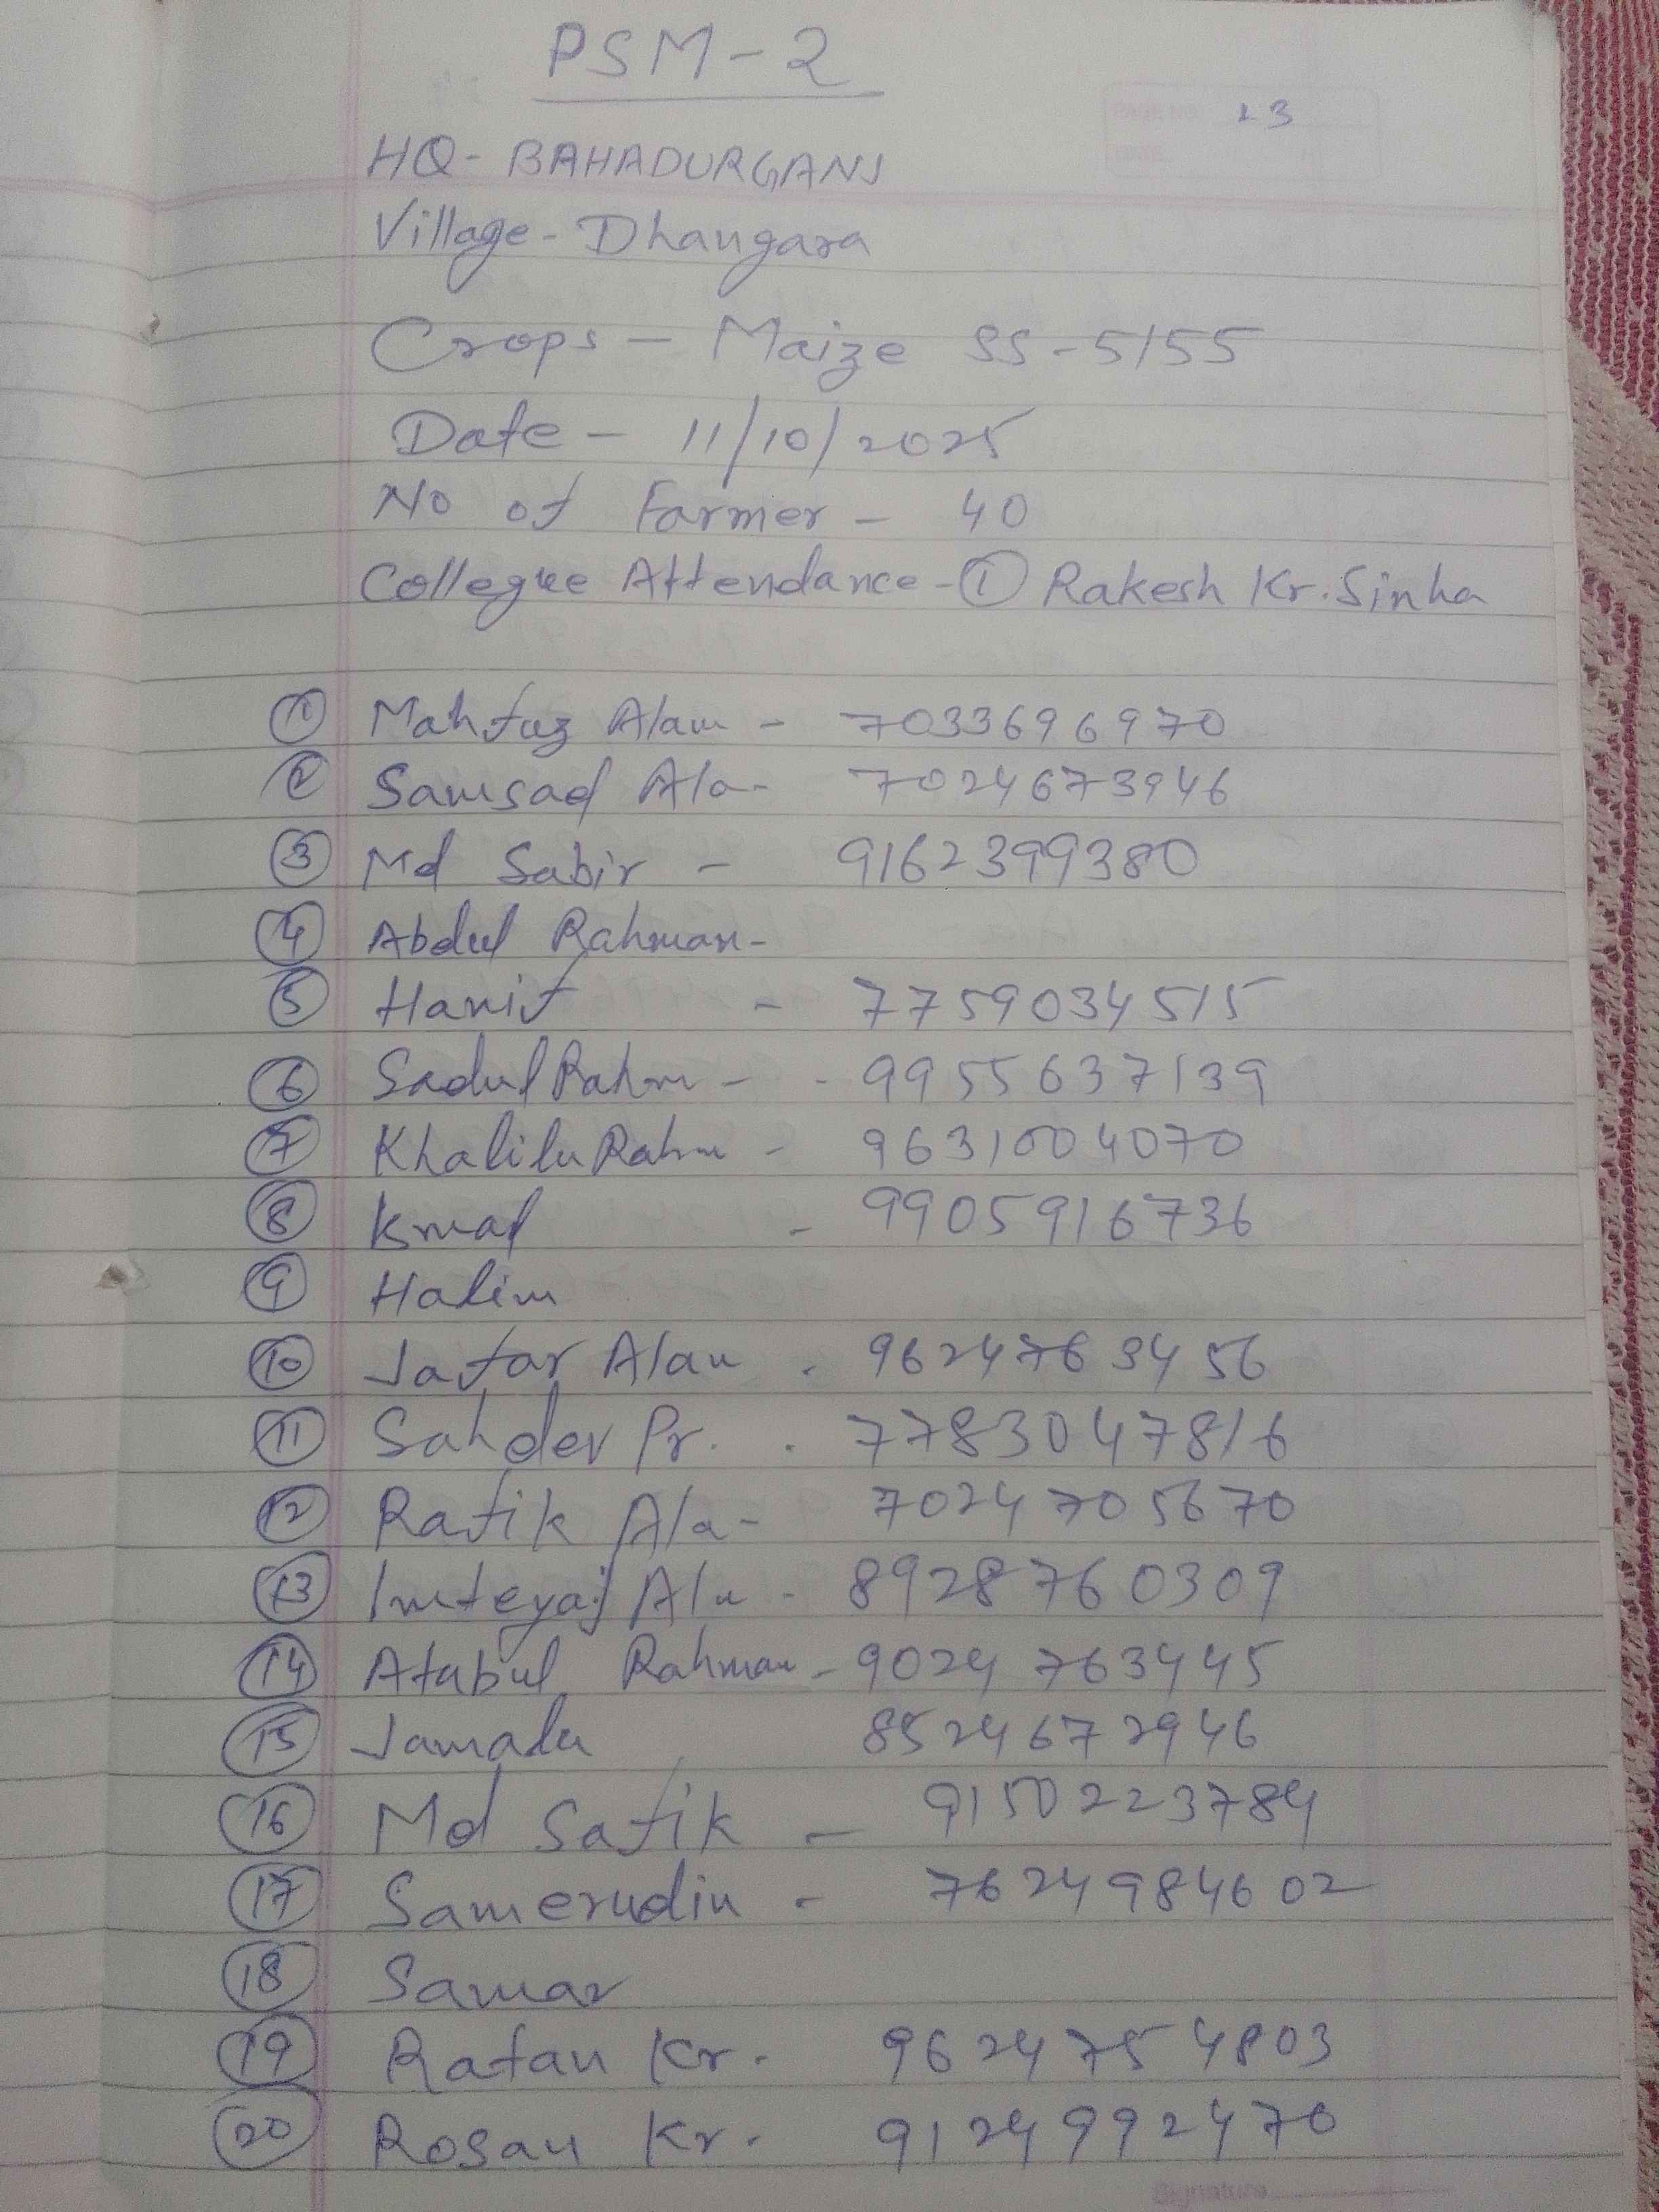 PSM-2
23
HQ- BAHADURGANJ
Village- Dhangara
Crops - Maize SS-5155
Date - 11/10/2025
No of Farmer - 40
Collegue Attendance-① Rakesh Kr. Sinha
① Mahfuz Alam - 7033696970
② Samsad Ala- 7024673946
③ Md Sabir - 9162399380
④ Abdul Rahman-
⑤ Hanif - 7759034515
⑥ Sadul Rahm - - 9955637139
⑦ Khalilu Rahm - 9631004070
⑧ Kmal - 9905916736
⑨ Halim
⑩ Jafar Alam . 9624763456
⑪ Sahdev Pr. . 7783047816
⑫ Rafik Ala- 7024705670
⑬ Imteyaj Ala - 8928760309
⑭ Afabul Rahman - 9024763445
⑮ Jamalu 8524672946
⑯ Md Safik - 9150223784
⑰ Samerudin - 7624984602
⑱ Samar
⑲ Ratan Kr. 9624754803
⑳ Rosan Kr. 9124992470
Signature